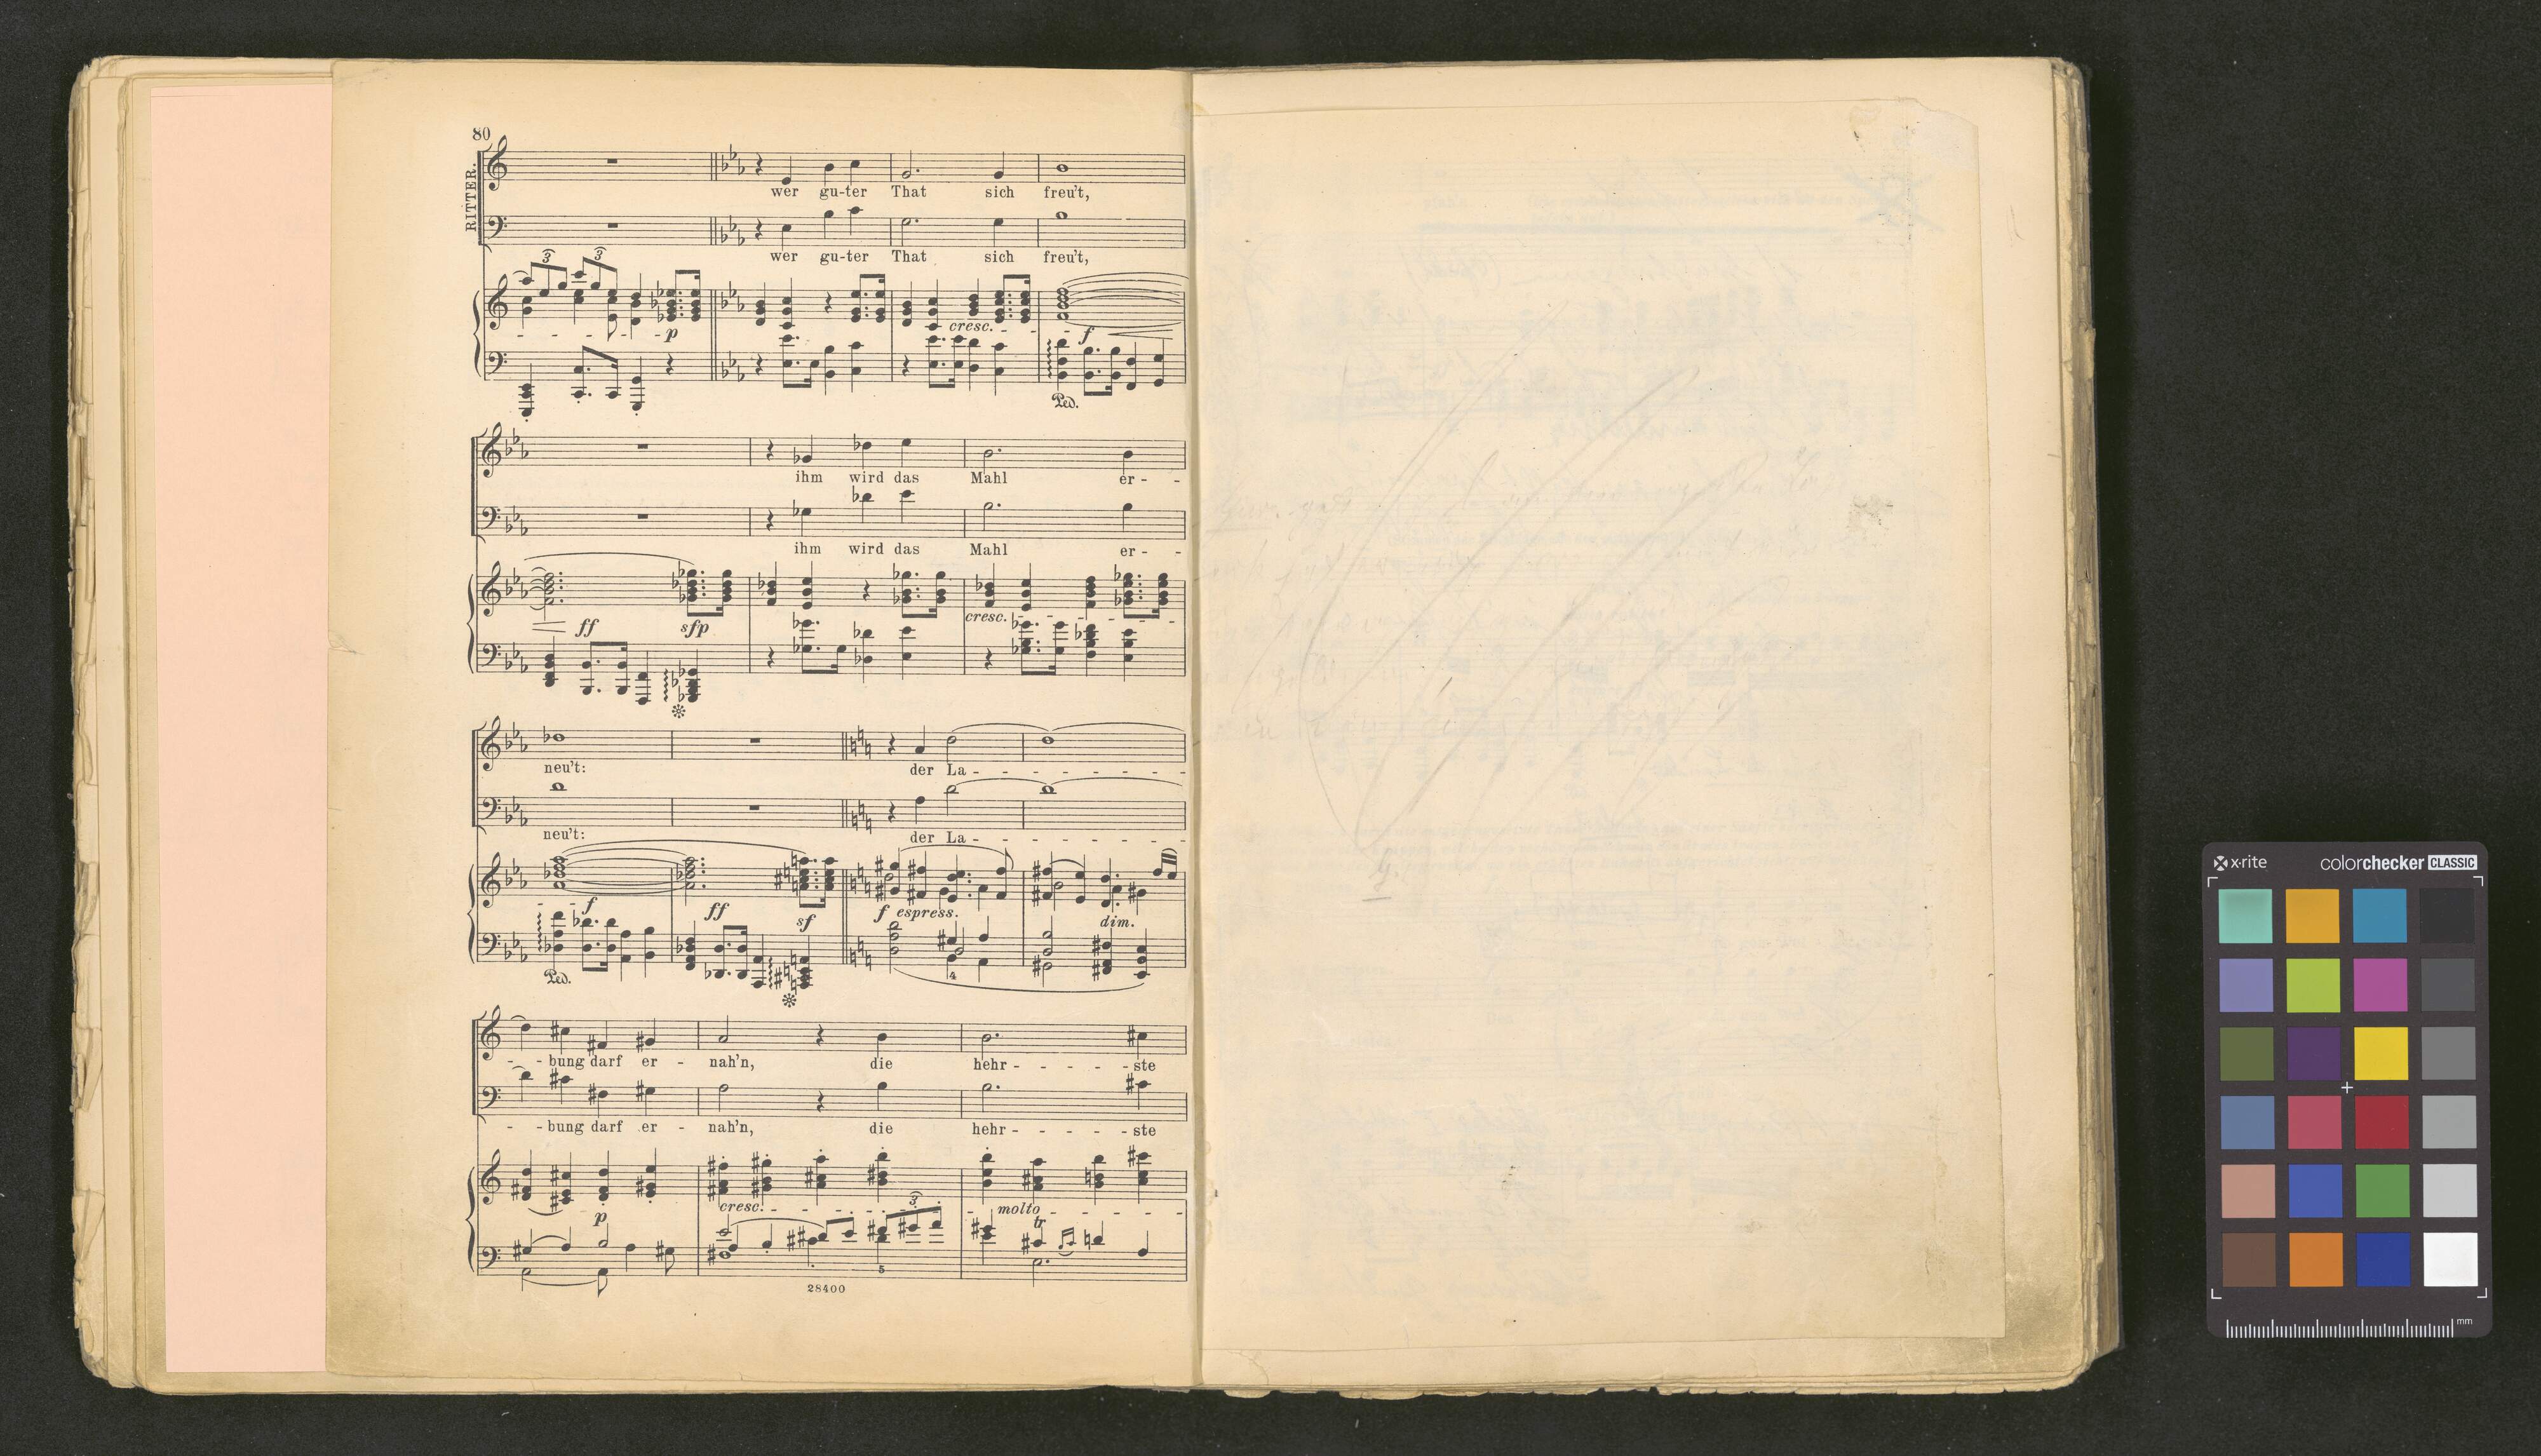 80
RITTER.
wer gu-ter That sich freu't,
wer gu-ter That sich freu't,
3 3
p cresc. - - - f
Ped.
ihm wird das Mahl er - -
ihm wird das Mahl er - -
ff sfp cresc. - - - -
neu't: der La - - - - - - - -
neu't: der La - - - - - - - -
f ff sf f espress. dim.
Ped. 4
- - bung darf er - nah'n, die hehr - - - - - ste
- - bung darf er - nah'n, die hehr - - - - - ste
p cresc. - - - - 3 - - molto - - - -
tr
5
28400
x·rite colorchecker CLASSIC
mm